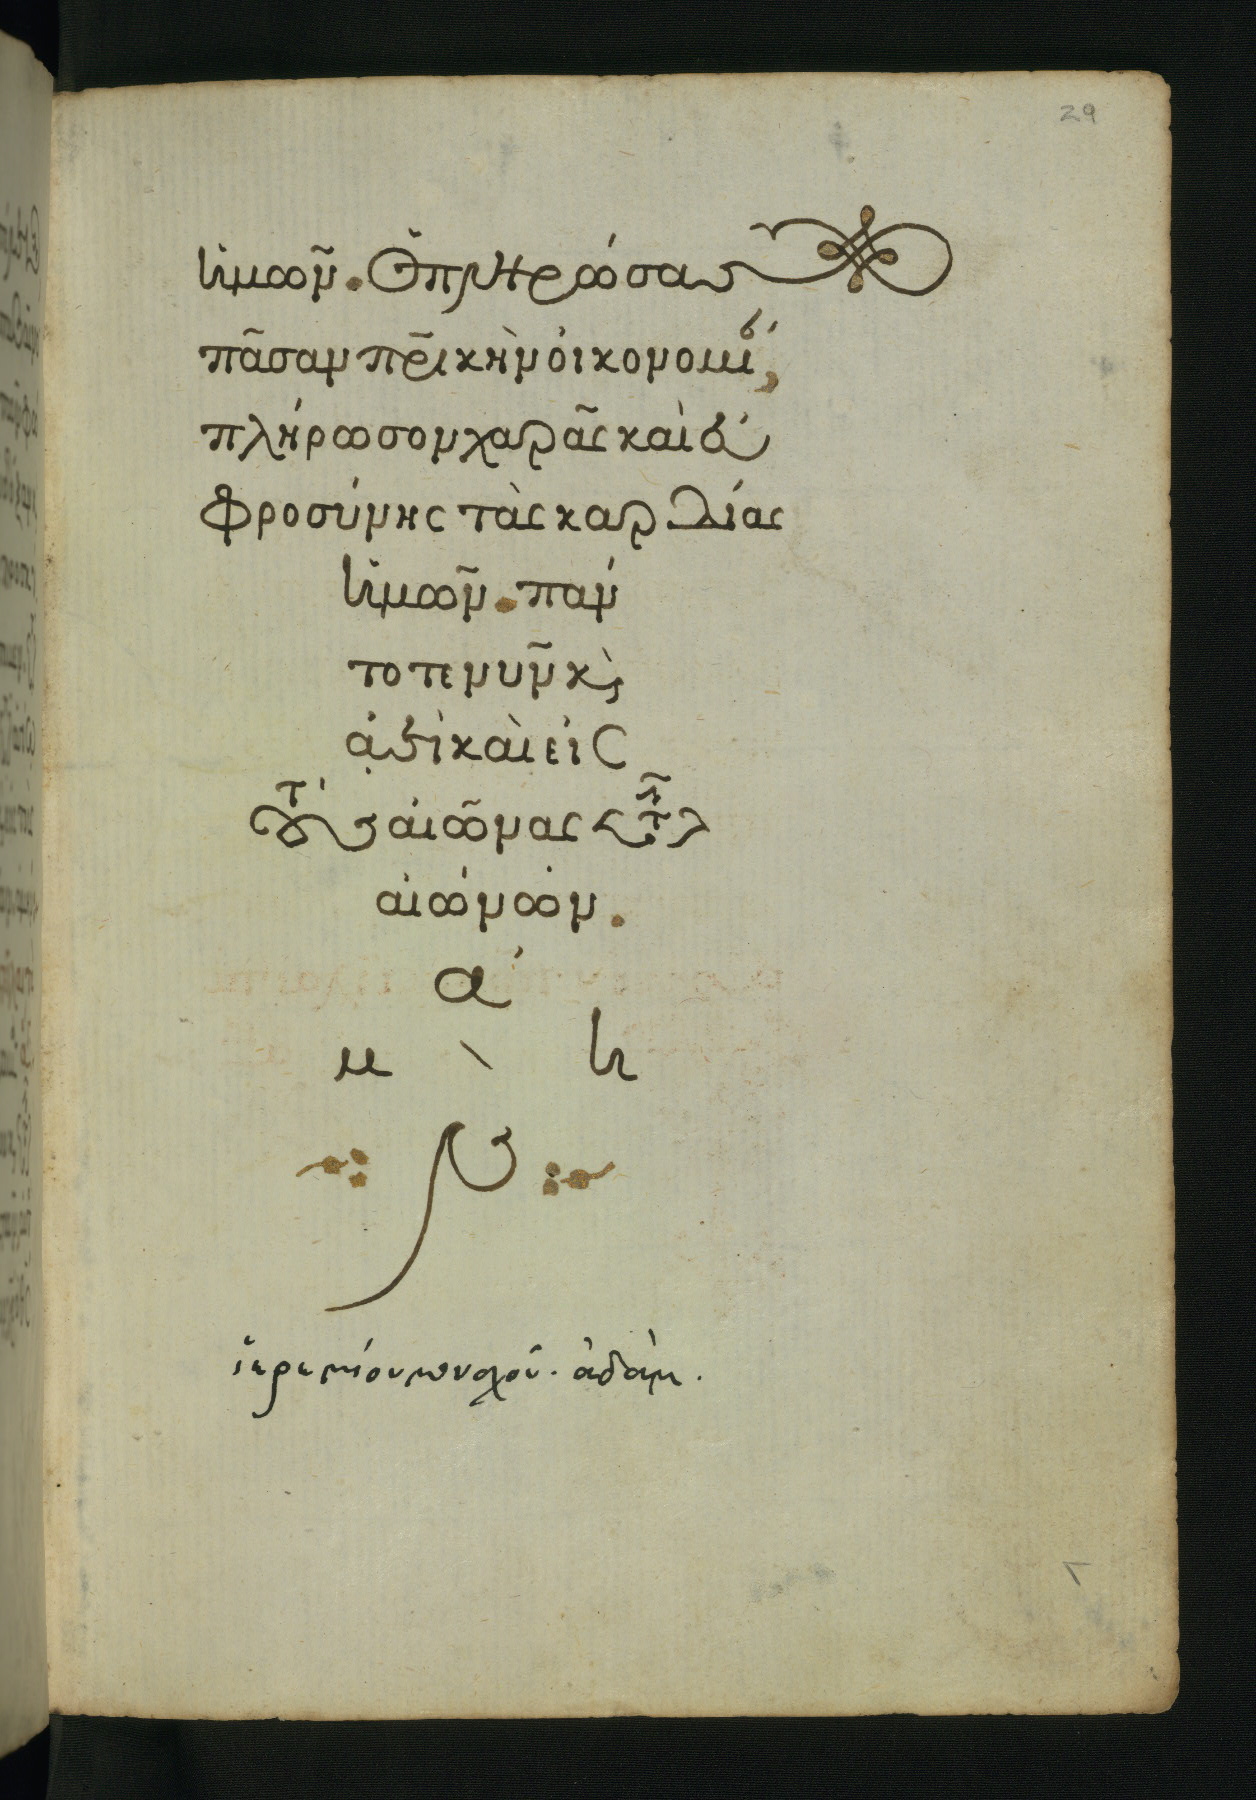 29
ἡμῶν. Ὁ πληρώσας
πᾶσαν π̅ρικὴν οἰκονομί
πλήρωσον χαρᾶς καὶ εὐ
φροσύνης τὰς καρδίας
ἡμῶν. πάν
τοτε νῦν κ̀
ἀεὶ καὶ εἰς
τοὺς αἰῶνας τῶν
αἰώνων.
ἀ
μ ὴ
ν
ἱερεμίου μοναχοῦ. ἀδὰμ.